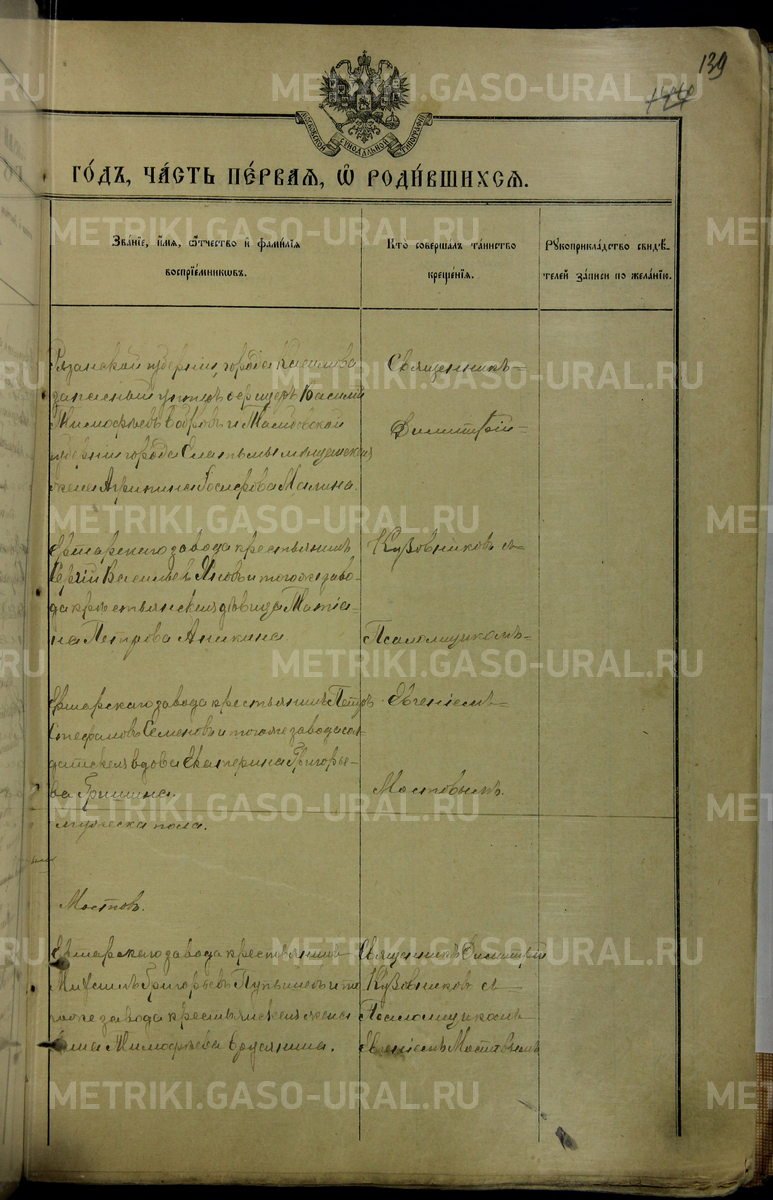 139
МОСКОВСКОЙ СУНОДАЛЬНОЙ ТИПОГРАФІИ
ГО́ДЪ, ЧА́СТЬ ПЕ́РВАЯ, Ѡ РОДИ́ВШИХСЯ.
Зва́нїе, и́мя, ѻ҆́тчество и҆ фами́лїя
воспрїе́мниковъ.
Кто̀ соверша́лъ та́инство
креще́нїя.
Рукоприкла́дство свидѣ́-
телей за́писи по жела́нїю.
Рязанской губерніи, города Касимова
запасный унтеръ офицеръ Василій
Тимофѣевъ Бобровъ и Тамбовской
губерніи города Елатьмы мѣщанская
жена Агрипина Малина.
Священникъ
Димитрій
Ертарскаго завода крестьянинъ
Сергій Васильевъ Яновъ и того же заво-
да крестьянская дѣвица Татіа-
на Петрова Аникина
Кузовниковъ съ
Псаломщикомъ
Ертарскаго завода крестьянинъ Петръ
Стефановъ Семеновъ и того же завода сол-
датская вдова Екатерина Григорье-
ва Гришина.
Евгеніемъ
Мостовымъ
мужеска пола.
Мостовъ.
Ертарскаго завода крестьянинъ
Михаилъ Григорьевъ и то-
го же завода крестьянская жена
Тимофѣева
Священникъ Димитрій
Кузовниковъ съ
Псаломщикомъ
Евгеніемъ Мостовымъ
METRIKI.GASO-URAL.RU